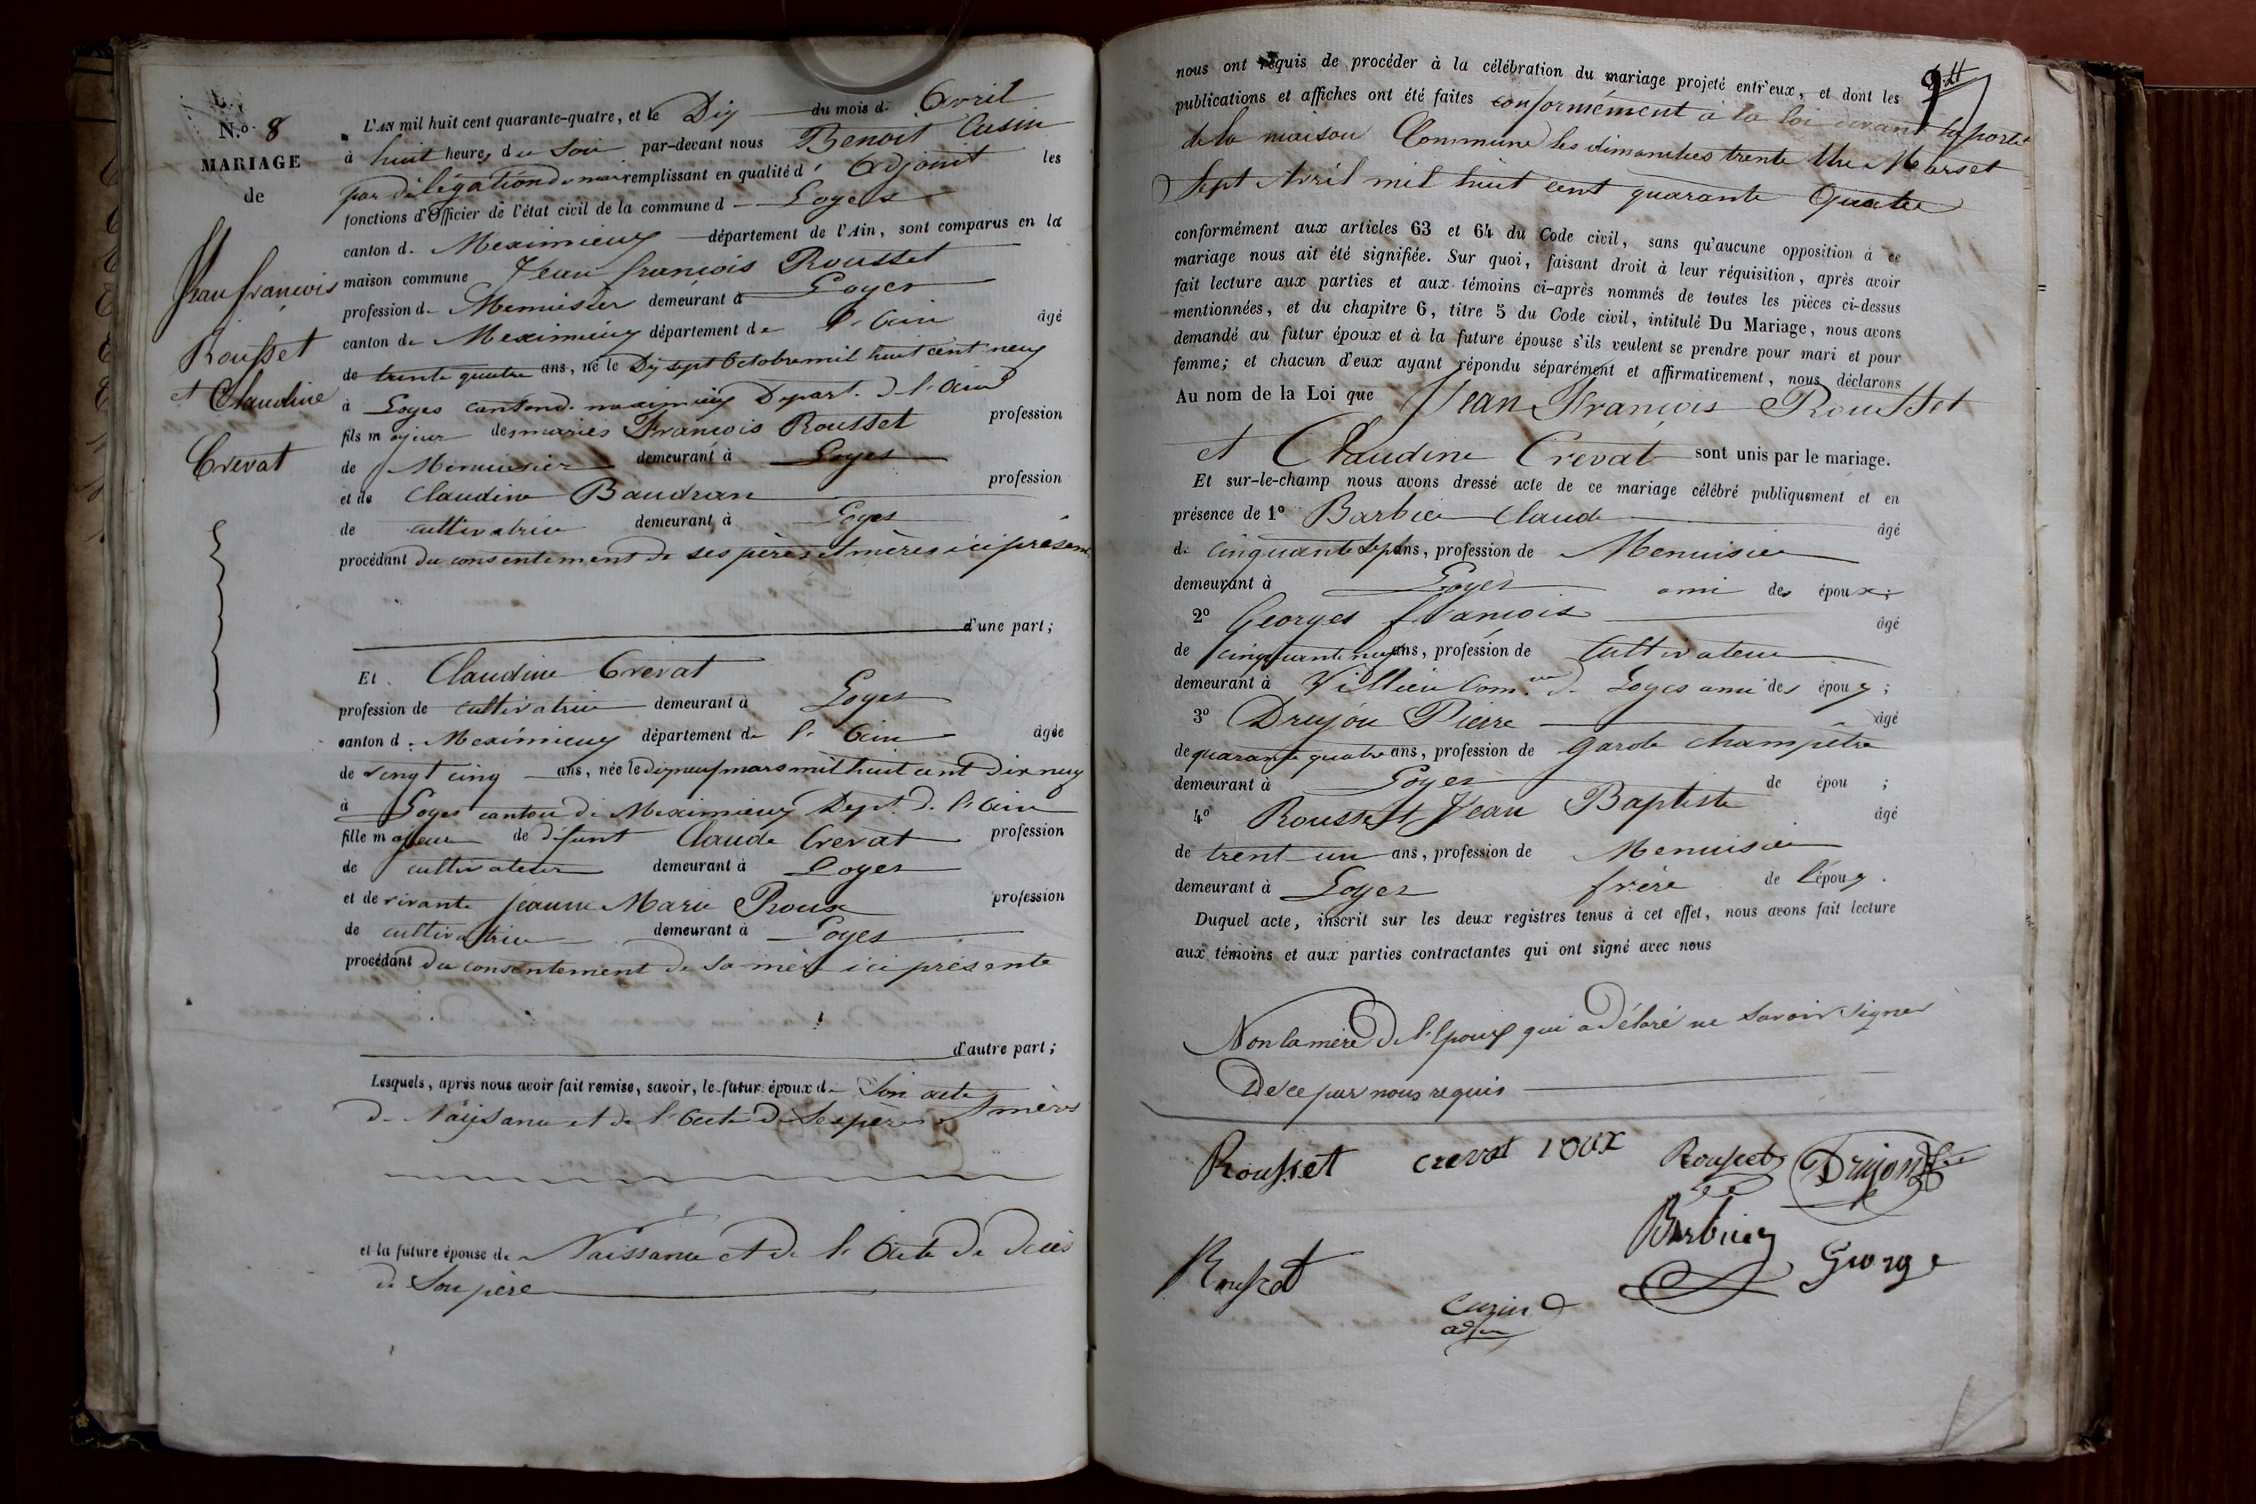 N.º 8
MARIAGE
de
Jean françois
Rousset
et Claudine
Crevat
L'AN mil huit cent quarante-quatre, et le Dix du mois d. Avril
à huit heures du Soir par-devant nous Benoit Cusin
par délégation du maire remplissant en qualité d' Adjoint les
fonctions d'Officier de l'état civil de la commune d Loyes
canton d. Meximieux département de l'Ain, sont comparus en la
maison commune Jean françois Rousset
profession de Menuisier demeurant à Loyes
canton de Meximieux département de l'Ain âgé
de trente quatre ans, né le Dix sept Octobre mil huit cent neuf
à Loyes canton de meximieux Depart. de l'Ain
fils majeur des mariés François Rousset profession
de Menuisier demeurant à Loyes
et de Claudine Baudran profession
de cultivatrice demeurant à Loyes
procédant du consentement de ses pères et mères ici présent
d'une part;
Et Claudine Crevat
profession de cultivatrice demeurant à Loyes
canton d. Meximieux département de l'Ain âgée
de vingt cinq ans, née le dix neuf mars mil huit cent Dix neuf
à Loyes canton de Meximieux Dept. de l'Ain
fille majeure de défunt Claude Crevat profession
de cultivateur demeurant à Loyes
et de vivante jeanne Marie Roux profession
de cultivatrice demeurant à Loyes
procédant du consentement de sa mère ici présente
d'autre part;
Lesquels, après nous avoir fait remise, savoir, le futur époux de Son acte
de Naissance et de l'Acte de Ses pères et mères
et la future épouse de Naissance et de l'Acte de décès
de Son père
nous ont requis de procéder à la célébration du mariage projeté entr'eux, et dont les
publications et affiches ont été faites conformément à la loi devant la porte
de la maison Commune les dimanches trente Un Mars et
Sept Avril mil huit cent quarante Quatre
conformément aux articles 63 et 64 du Code civil, sans qu'aucune opposition à ce
mariage nous ait été signifiée. Sur quoi, faisant droit à leur réquisition, après avoir
fait lecture aux parties et aux témoins ci-après nommés de toutes les pièces ci-dessus
mentionnées, et du chapitre 6, titre 5 du Code civil, intitulé Du Mariage, nous avons
demandé au futur époux et à la future épouse s'ils veulent se prendre pour mari et pour
femme; et chacun d'eux ayant répondu séparément et affirmativement, nous déclarons
Au nom de la Loi que Jean François Rousset
et Claudine Crevat sont unis par le mariage.
Et sur-le-champ nous avons dressé acte de ce mariage célébré publiquement et en
présence de 1º Barbier Claude âgé
de cinquante sept ans, profession de Menuisier
demeurant à Loyes ami des époux;
2º Georges francois âgé
de cinquante neuf ans, profession de Cultivateur
demeurant à Villieu Com.ne de Loyes ami des époux;
3º Drujon Pierre âgé
de quarante quatre ans, profession de garde champêtre
demeurant à Loyes de épou ;
4º Rousset Jean Baptiste âgé
de trent un ans, profession de Menuisier
demeurant à Loyes frère de l'époux.
Duquel acte, inscrit sur les deux registres tenus à cet effet, nous avons fait lecture
aux témoins et aux parties contractantes qui ont signé avec nous
Non la mère de l'Epoux qui a déclaré ne Savoir Signer
De ce par nous requis
Rousset crevat roux Rousset Drujon
Barbier
Rousset George
Cuzin
adj